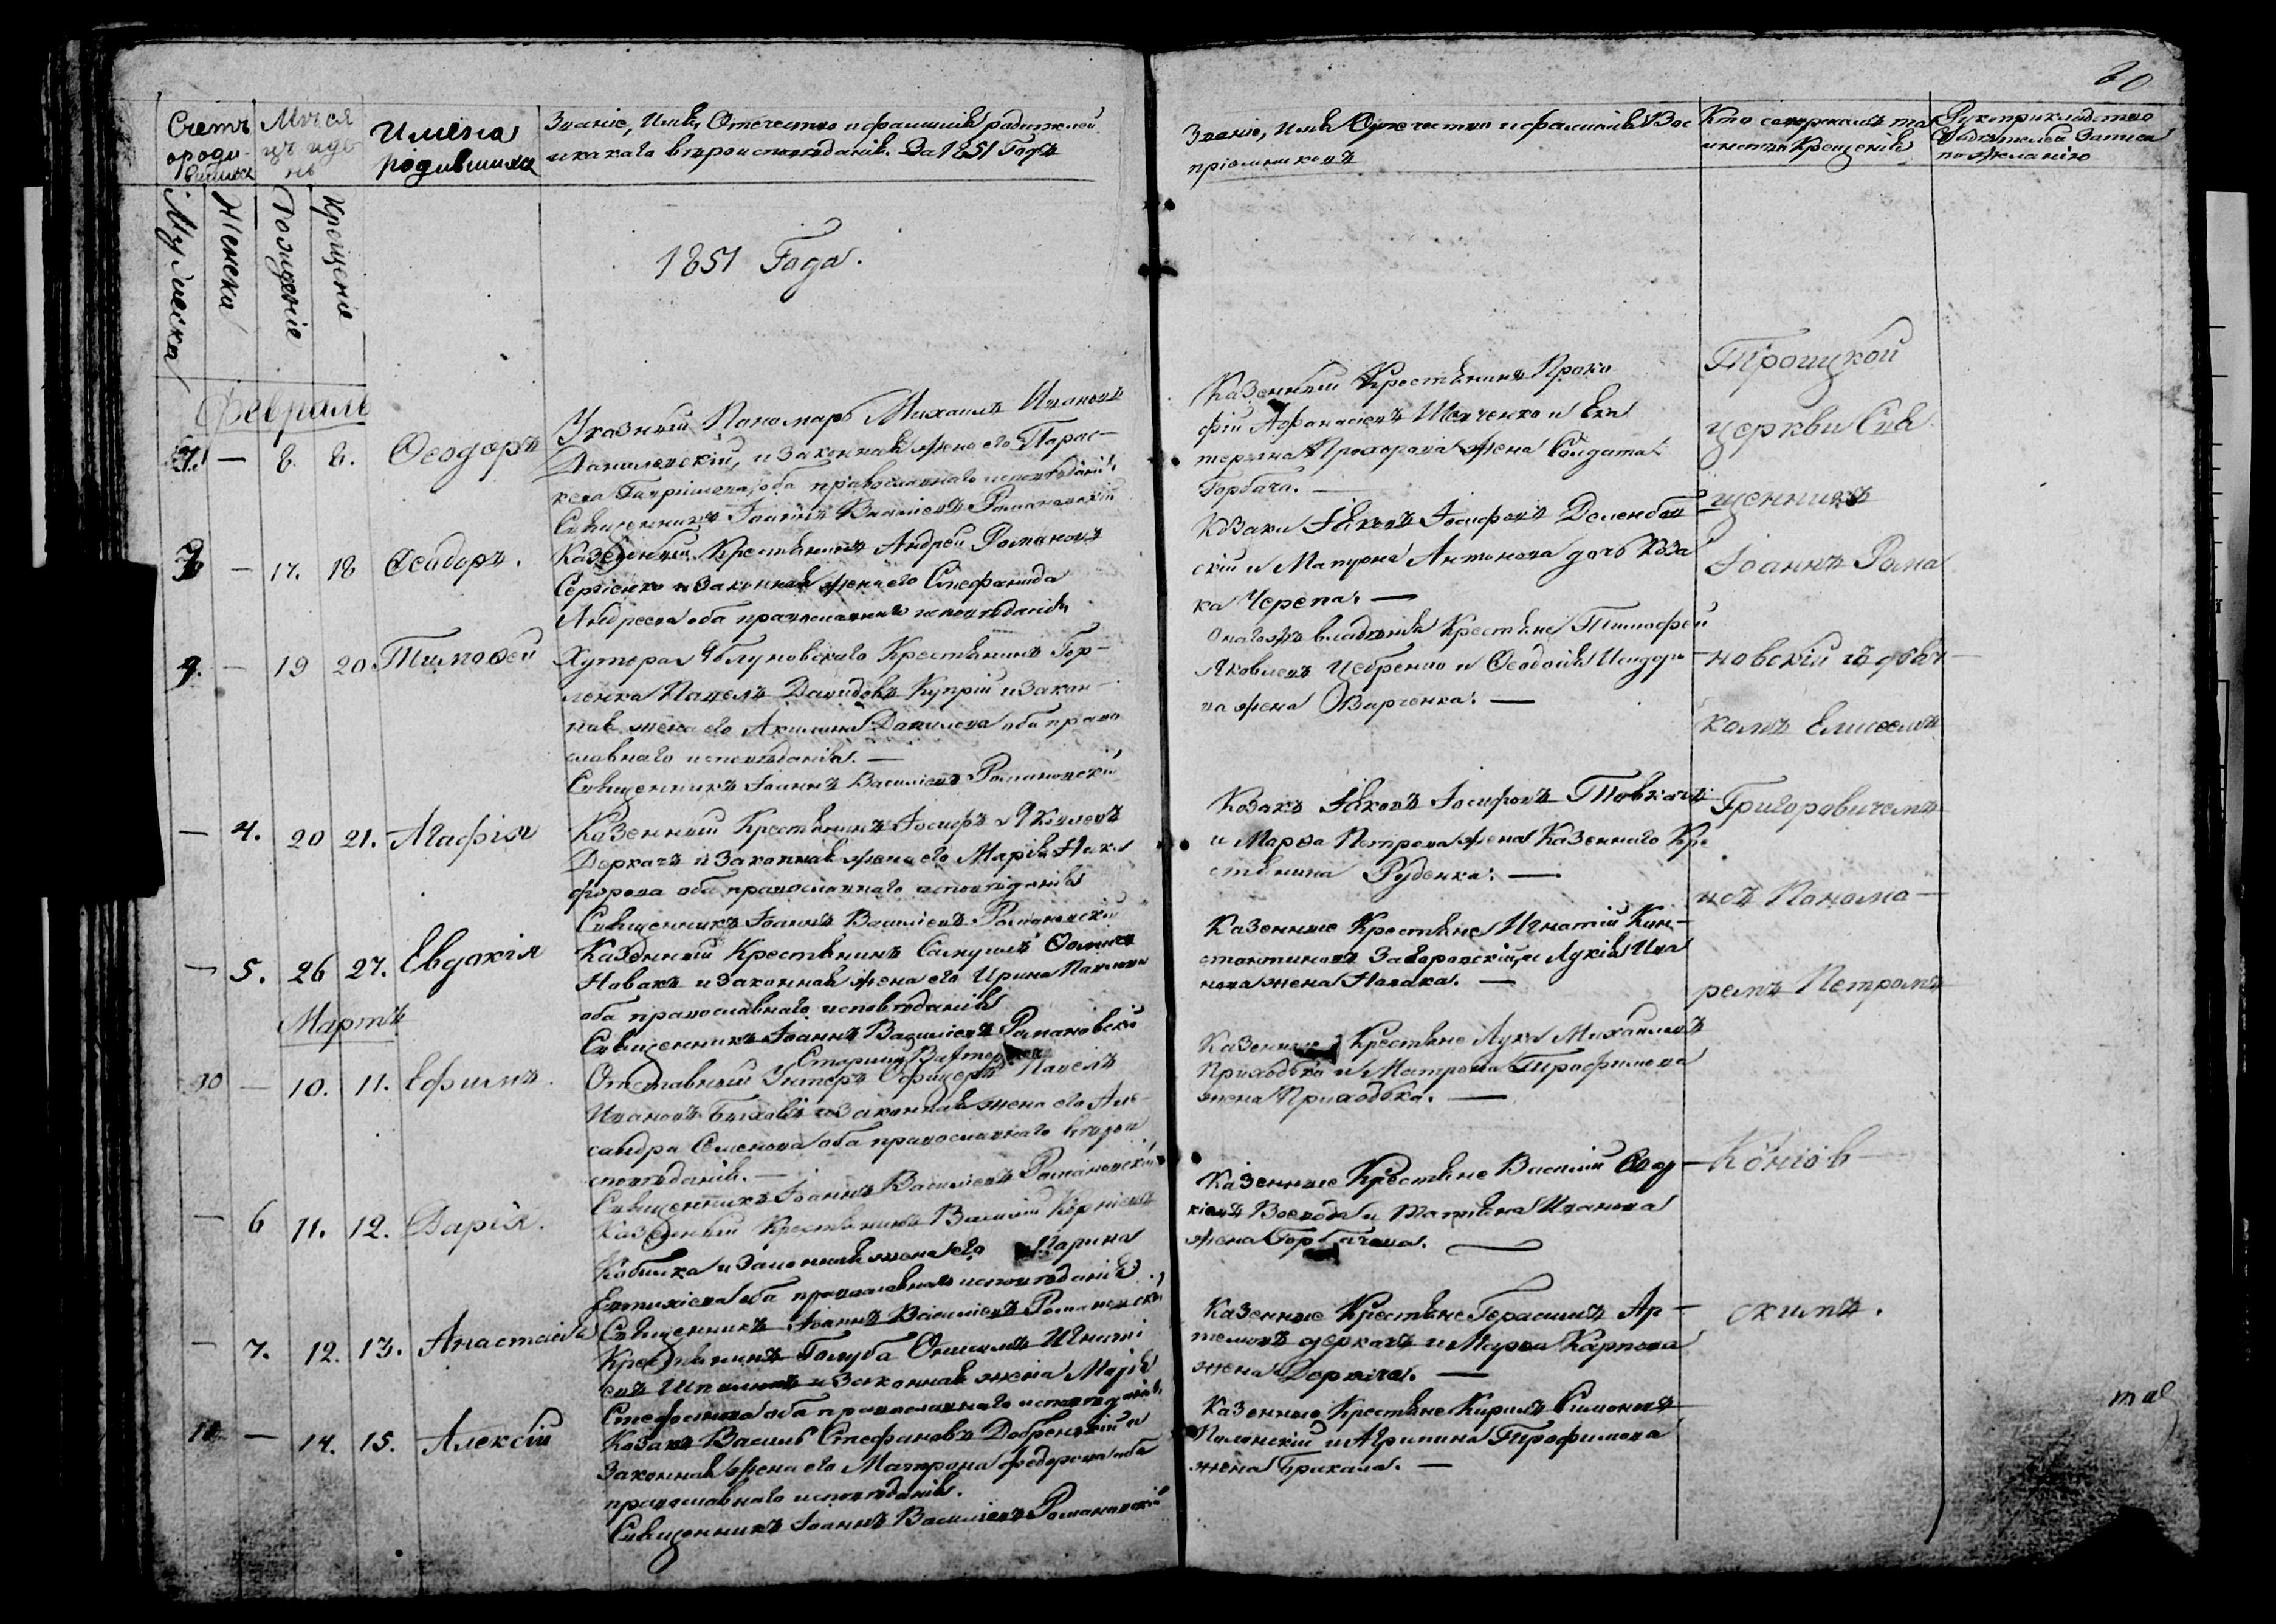 20
Счетъ
ороди-
вшихся
Мѣся
цъ идѣ
нь
Имена
родившихся
Званіе, Имя, Отечество и фамилія родителей
и какого вѣроисповѣданія. За 1851 Годъ
Званіе, Имя Отечество и фамилія Вос
пріемниковъ
Кто совершалъ та
инство Крещенія
Рукоприкладство
Свидѣтелей записи
по желанію
Мужеска
Женска
Рожденіе
Крещеніе
1851 Года.
Февраль
— 8. 8. Ѳеодоръ
Указный Пономарь Михаилъ Ивановъ
Данилевскій, и законная жена его Парас-
кева Гавриилова, оба православнаго исповѣданія.
Священникъ Іоаннъ Василіевъ Романовскій
Казенный Крестянинъ Проко
фій Афанасіевъ Шевченко и Ека
терина Прохорова жена Солдата
Горбача. —
— 17. 18 Ѳеодоръ.
Казенный Крестянинъ Андрей Романовъ
Сергіенко и Законная жена его Стефанида
Андреева оба православнаго исповѣданія
Козаки Яковъ Іосифовъ
скій и Матрона Антонова дочь Коза
ка Черепа. —
9. — 19 20 Тимоѳей
Хутора Яблуновскаго Крестянинъ Гор-
ленка Павелъ Давидовъ Куприй и Закон-
ная жена его Акилина Данилова оба право
славнаго исповѣданія. —
Священникъ Іоаннъ Василіевъ Романовскій
Онагожъ владѣнія Крестяне Тимофей
Яковлевъ Цебренко и Ѳеодосія Исидоро
ва жена Озарченка. —
— 4. 20 21. Агафія
Казенный Крестянинъ Іосифъ Яковлевъ
Деркачъ и Законная жена его Марія Ники
форова оба православнаго исповѣданія
Священникъ Іоаннъ Василіевъ Романовскій
Козакъ Яковъ Іосифовъ Товкачъ
и Марѳа Петрова жена Казеннаго Кре
стянина Руденка. —
— 5. 26 27. Евдокія
Казенный Крестянинъ Самуилъ Ѳоминъ
Новакъ и законная жена его Ирина Павлова
оба православнаго исповѣданія
Священникъ Іоаннъ Василіевъ Романовскій
Казенные Крестяне Игнатій Кон-
стантиновъ Заворовскій, и Лукія Ива
нова жена Новака. —
Мартъ
10 — 10. 11. Ефимъ.
Старшій
Отставный Унтеръ Офицеръ Павелъ
Ивановъ и законная жена его Але-
сандра Семенова оба православнаго вѣрои
сповѣданія. —
Священникъ Іоаннъ Василіевъ Романовскій
Казенные Крестяне Лука Михаиловъ
Приходько и Матрона Трофимова
жена Приходька. —
— 6 11. 12. Дарія.
Казенный Крестянинъ Василій Корніевъ
Кобилка и Законная жена его Марина
Евтихіева оба православнаго исповѣданія
Священникъ Іоаннъ Василіевъ Романовскій
Казенные Крестяне Василій
Воевода и Татіяна Иванова
жена Горбачова. —
— 7. 12. 13. Анастасія
Крестянинъ Голуба Онисимъ Игнаті
евъ и Законная жена Марія
Стефанова оба православнаго исповѣданія
Казенные Крестяне Герасимъ Ар-
темовъ деркачъ и Марѳа Карпова
жена Деркача. —
— 14. 15. Алексій
Козакъ Василь Стефановъ Добренскій и
Законная жена его Матрона Федорова оба
православнаго исповѣданія.
Священникъ Іоаннъ Василіевъ Романовскій
Казенные Крестяне Кирилъ Симоновъ
Полонскій и Агрипина Трофимова
жена Брахала. —
Троицкой
церкви Свя
щенникъ
Іоаннъ Рома
новскій съ дьяч-
комъ Елисеемъ
Григоровичемъ
и Понама-
ремъ Петромъ
Коніов-
скимъ.